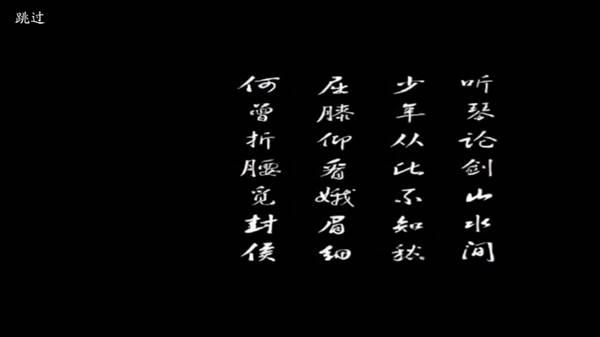 跳过
听琴论剑山水间
少年从此不知愁
屈膝仰看娥眉细
何曾折腰觅封侯